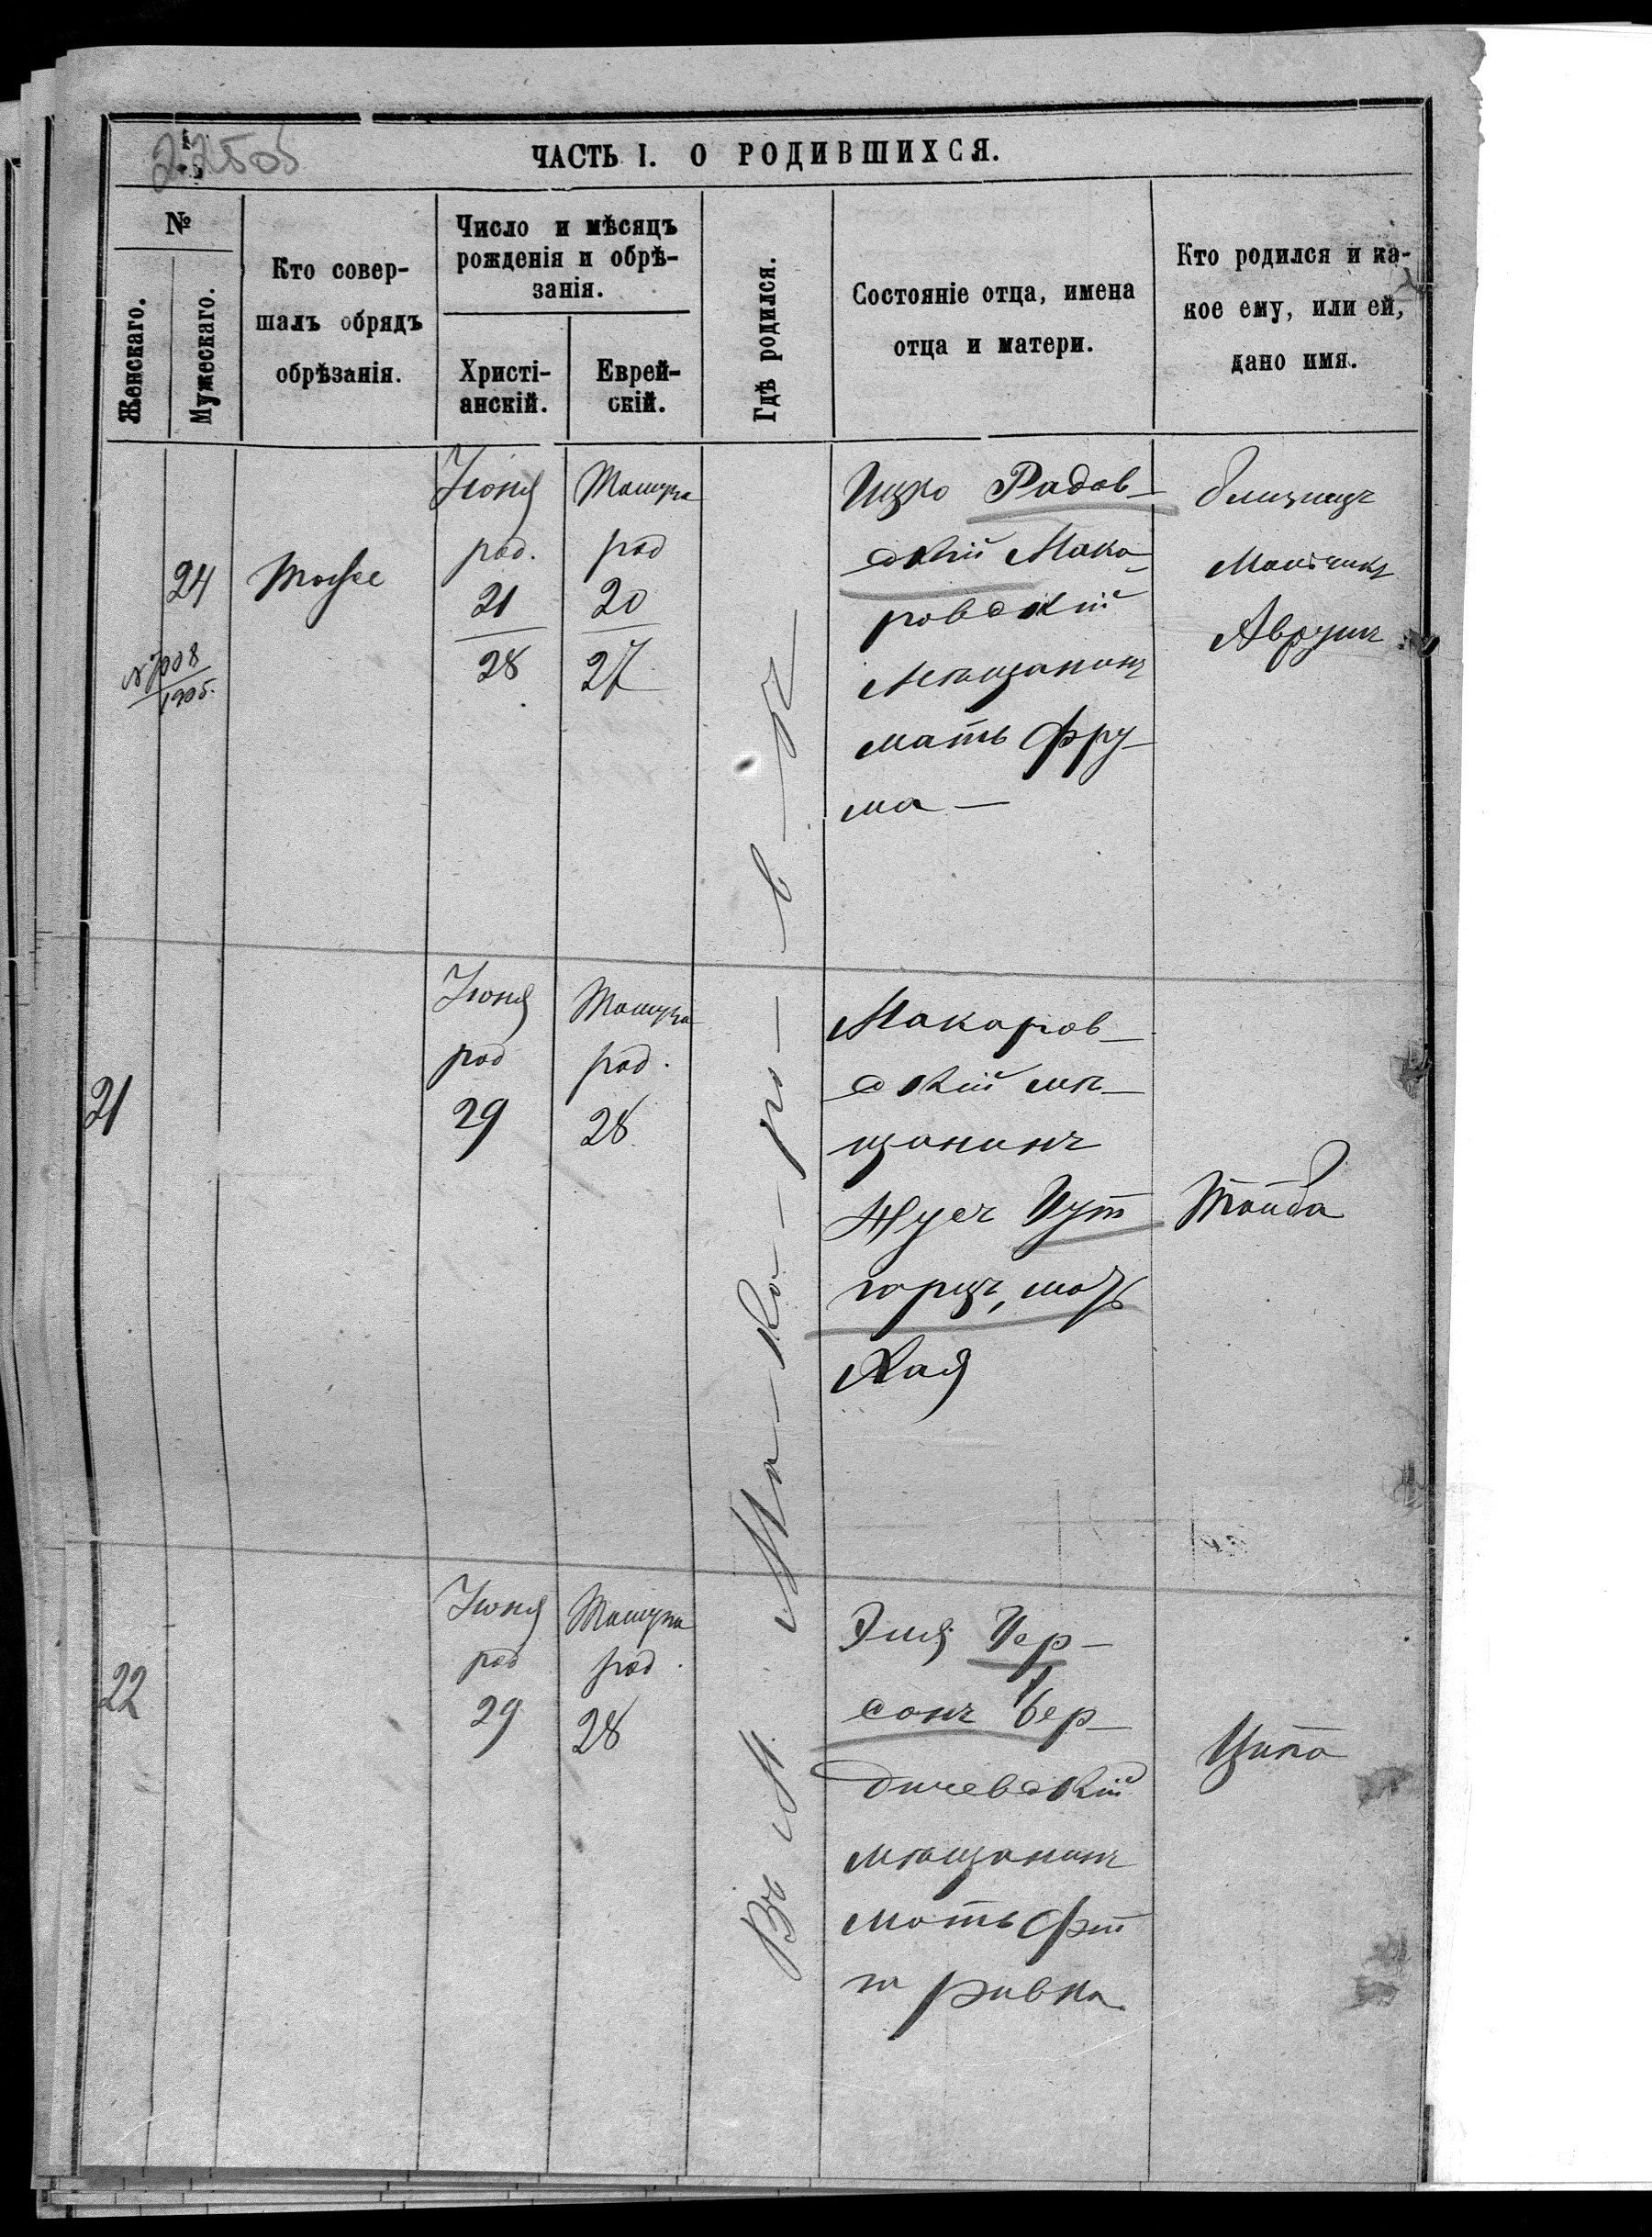 22505
ЧАСТЬ I. О РОДИВШИХСЯ.
№
Женскаго.
Мужескаго.
Кто совер-
шалъ обрядъ
обрѣзанія.
Число и мѣсяцъ
рожденія и обрѣ-
занія.
Христі-
анскій.
Еврей-
скій.
Гдѣ родился.
Состояніе отца, имена
отца и матери.
Кто родился и ка-
кое ему, или ей,
дано имя.
24
№ 7008
1905.
Іюня
род.
21
28
род
20
27
Въ М. Ма-ка-ро-в-ѣ
Ицко Радов-
скій Мака-
ровскій
мѣщанинъ
мать Фру-
ма —
близнецъ
Мальчикъ
Аврумъ
21
Іюня
род
29
род.
28
Макаров-
скій мѣ-
щанинъ
горцъ, мать
Хая
Тойба
22
Іюня
род
29
род.
28
Эля Гер-
сонъ Бер-
дичевскій
мѣщанинъ
мать
Ривка
Ципа